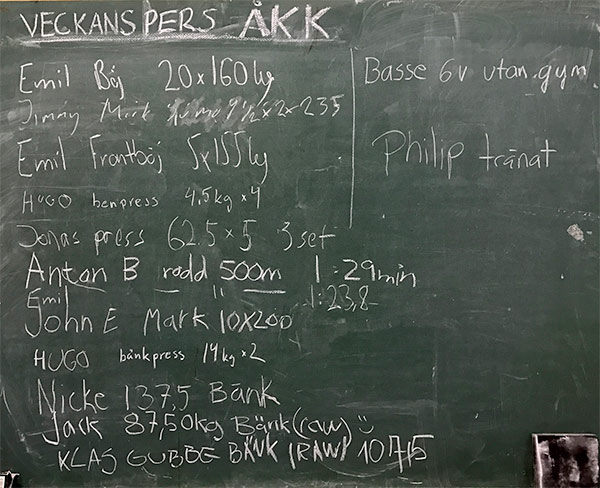 VECKANS PERS ÅKK
Emil Böj 20x160kg
Jimmy Mark 2x235
Emil Frontböj 5x155kg
HUGO benpress 4,5kg x4
Jonas press 62.5 x 5 3 set
Anton B rodd 500m 1:29min
Emil " 1:23,8
John E Mark 10X200
HUGO bänkpress 14kg x2
Nicke 137,5 Bänk
Jack 87,50kg Bänk (raw) :)
KLAS GUBBE BÄNK (RAW)
Basse 6v utan gym
Philip tränat